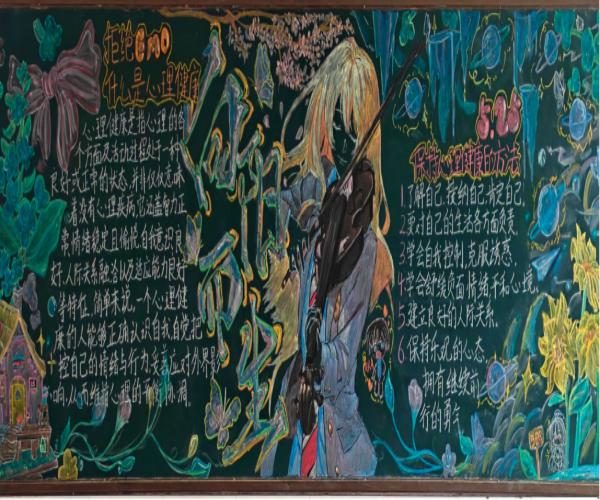 拒绝emo
什么是心理健康
心理健康是指心理的各
个方面及活动过程处于一种
良好或正常的状态,并非仅仅意味
着没有心理疾病,它涵盖智力正
常、情绪稳定且愉悦、自我意识良
好、人际关系融洽以及适应能力良好
等特征。简单来说,一个心理健
康的人能够正确认识自我,自觉把
控自己的情绪与行为,妥善应对外界影
响,从而维持心理的平衡协调。
向阳而生
5.25
保持心理健康的方法
1 了解自己、接纳自己、肯定自己。
2 要对自己的生活各方面负责。
3 学会自我控制,克服诱惑。
4 学会舒缓负面情绪,平和心境。
5 建立良好的人际关系。
6 保持乐观的心态,
拥有继续前
行的勇气